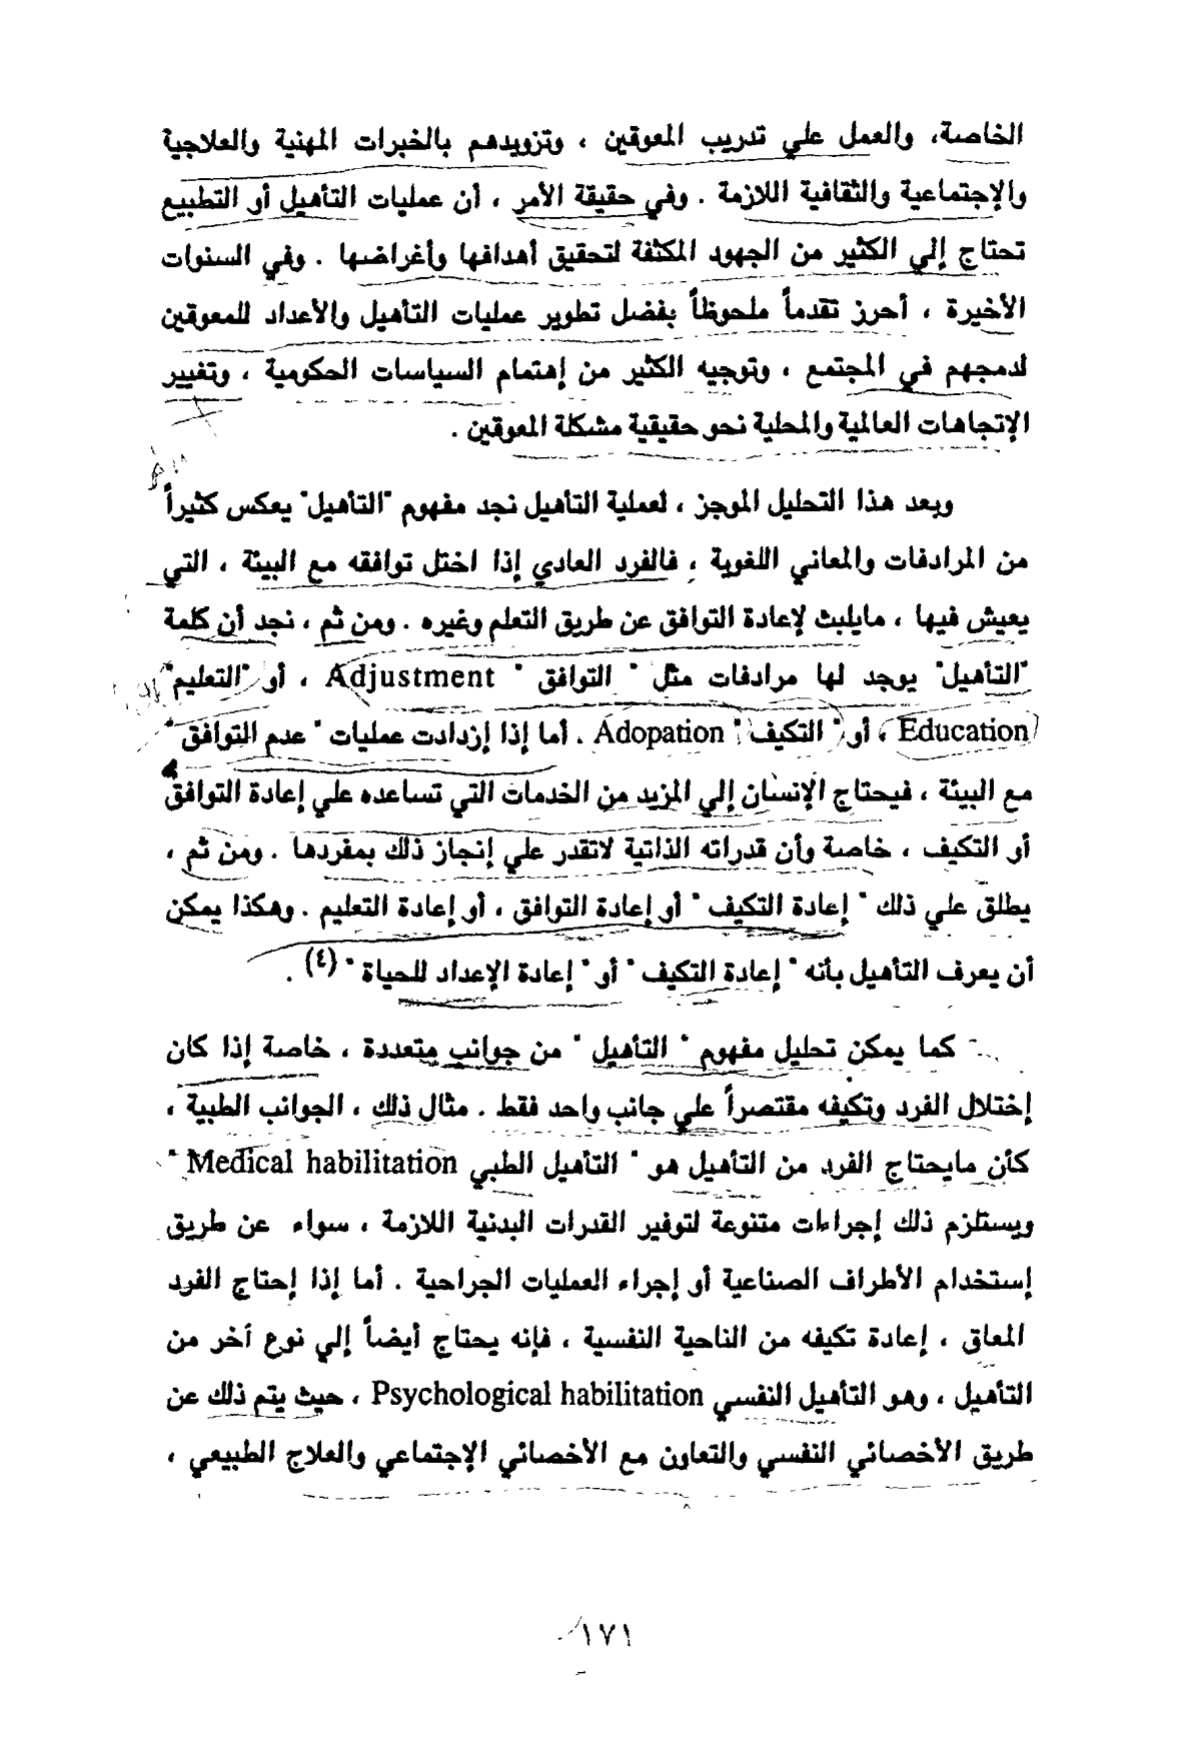 الخاصة، والعمل علي تدريب المعوقين ، وتزويدهم بالخبرات المهنية والعلاجية
والإجتماعية والثقافية اللازمة . وفي حقيقة الأمر ، أن عمليات التأهيل أو التطبيع
تحتاج إلي الكثير من الجهود المكثفة لتحقيق أهدافها وأغراضها . وفي السنوات
الأخيرة ، أحرز تقدماً ملحوظاً بفضل تطوير عمليات التأهيل والأعداد للمعوقين
لدمجهم في المجتمع ، وتوجيه الكثير من إهتمام السياسات الحكومية ، وتغيير
الإتجاهات العالمية والمحلية نحو حقيقية مشكلة المعوقين .
وبعد هذا التحليل الموجز ، لعملية التأهيل نجد مفهوم "التأهيل" يعكس كثيراً
من المرادفات والمعاني اللغوية ، فالفرد العادي إذا اختل توافقه مع البيئة ، التي
يعيش فيها ، مايلبث لإعادة التوافق عن طريق التعلم وغيره . ومن ثم ، نجد أن كلمة
"التأهيل" يوجد لها مرادفات مثل " التوافق " Adjustment ، أو "التعليم"
Education ، أو " التكيف " Adopation . أما إذا إزدادت عمليات " عدم التوافق "
مع البيئة ، فيحتاج الإنسان إلي المزيد من الخدمات التي تساعده علي إعادة التوافق
أو التكيف ، خاصة وأن قدراته الذاتية لاتقدر علي إنجاز ذلك بمفردها . ومن ثم ،
يطلق علي ذلك " إعادة التكيف " أو إعادة التوافق ، أو إعادة التعليم . وهكذا يمكن
أن يعرف التأهيل بأنه " إعادة التكيف " أو " إعادة الإعداد للحياة " (٤) .
كما يمكن تحليل مفهوم " التأهيل " من جوانب متعددة ، خاصة إذا كان
إختلال الفرد وتكيفه مقتصراً علي جانب واحد فقط . مثال ذلك ، الجوانب الطبية ،
كأن مايحتاج الفرد من التأهيل هو " التأهيل الطبي Medical habilitation "
ويستلزم ذلك إجراءات متنوعة لتوفير القدرات البدنية اللازمة ، سواء عن طريق
إستخدام الأطراف الصناعية أو إجراء العمليات الجراحية . أما إذا إحتاج الفرد
المعاق ، إعادة تكيفه من الناحية النفسية ، فإنه يحتاج أيضاً إلي نوع آخر من
التأهيل ، وهو التأهيل النفسي Psychological habilitation ، حيث يتم ذلك عن
طريق الأخصائي النفسي والتعاون مع الأخصائي الإجتماعي والعلاج الطبيعي ،
١٧١